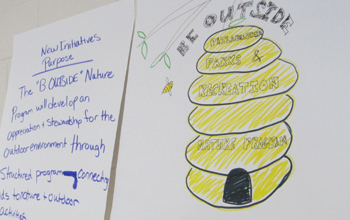 New Initiative's
Purpose
The "B OUTSIDE" Nature
Program will develop an
appreciation & stewardship for the
outdoor environment through
structured program connecting
kids to nature & outdoor
activities
BE OUTSIDE
PARKS &
RECREATION
NATURE PROGRAM